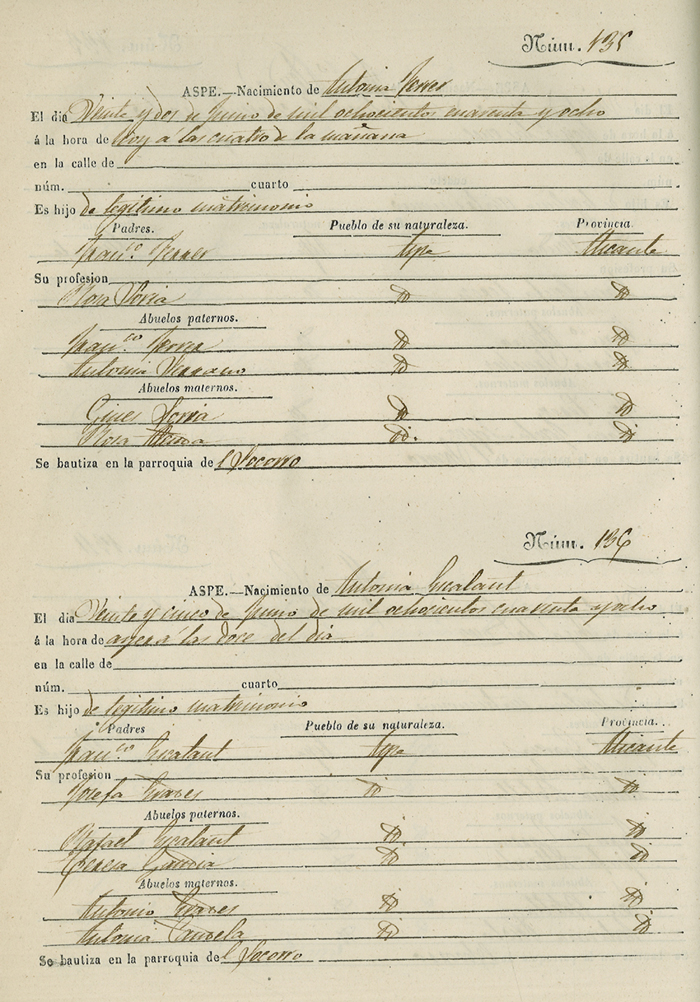 Núm. 135
ASPE.—Nacimiento de Antonia Ferrer
El dia Veinte y dos de Junio de mil ochocientos cuarenta y ocho
á la hora de hoy a las cuatro de la mañana
en la calle de
núm. cuarto
Es hijo de legitimo matrimonio
Padres. Pueblo de su naturaleza. Provincia.
Franco. Ferrer Aspe Alicante
Su profesion
Rosa Soria D D
Abuelos paternos.
Franco Ferrer D D
Antonia Serrano D D
Abuelos maternos.
Gines Soria D D
Rosa D D
Se bautiza en la parroquia del Socorro
Núm. 136
ASPE.—Nacimiento de Antonia Escalant
El dia Veinte y cinco de Junio de mil ochocientos cuarenta y ocho
á la hora de ayer á las doce del dia
en la calle de
núm. cuarto
Es hijo de legitimo matrimonio
Padres Pueblo de su naturaleza. Provincia.
Franco Escalant Aspe Alicante
Su profesion
Josefa D D
Abuelos paternos.
Rafael Escalant D D
Teresa Garcia D D
Abuelos maternos.
Antonio D D
Antonia Candela D D
Se bautiza en la parroquia del Socorro